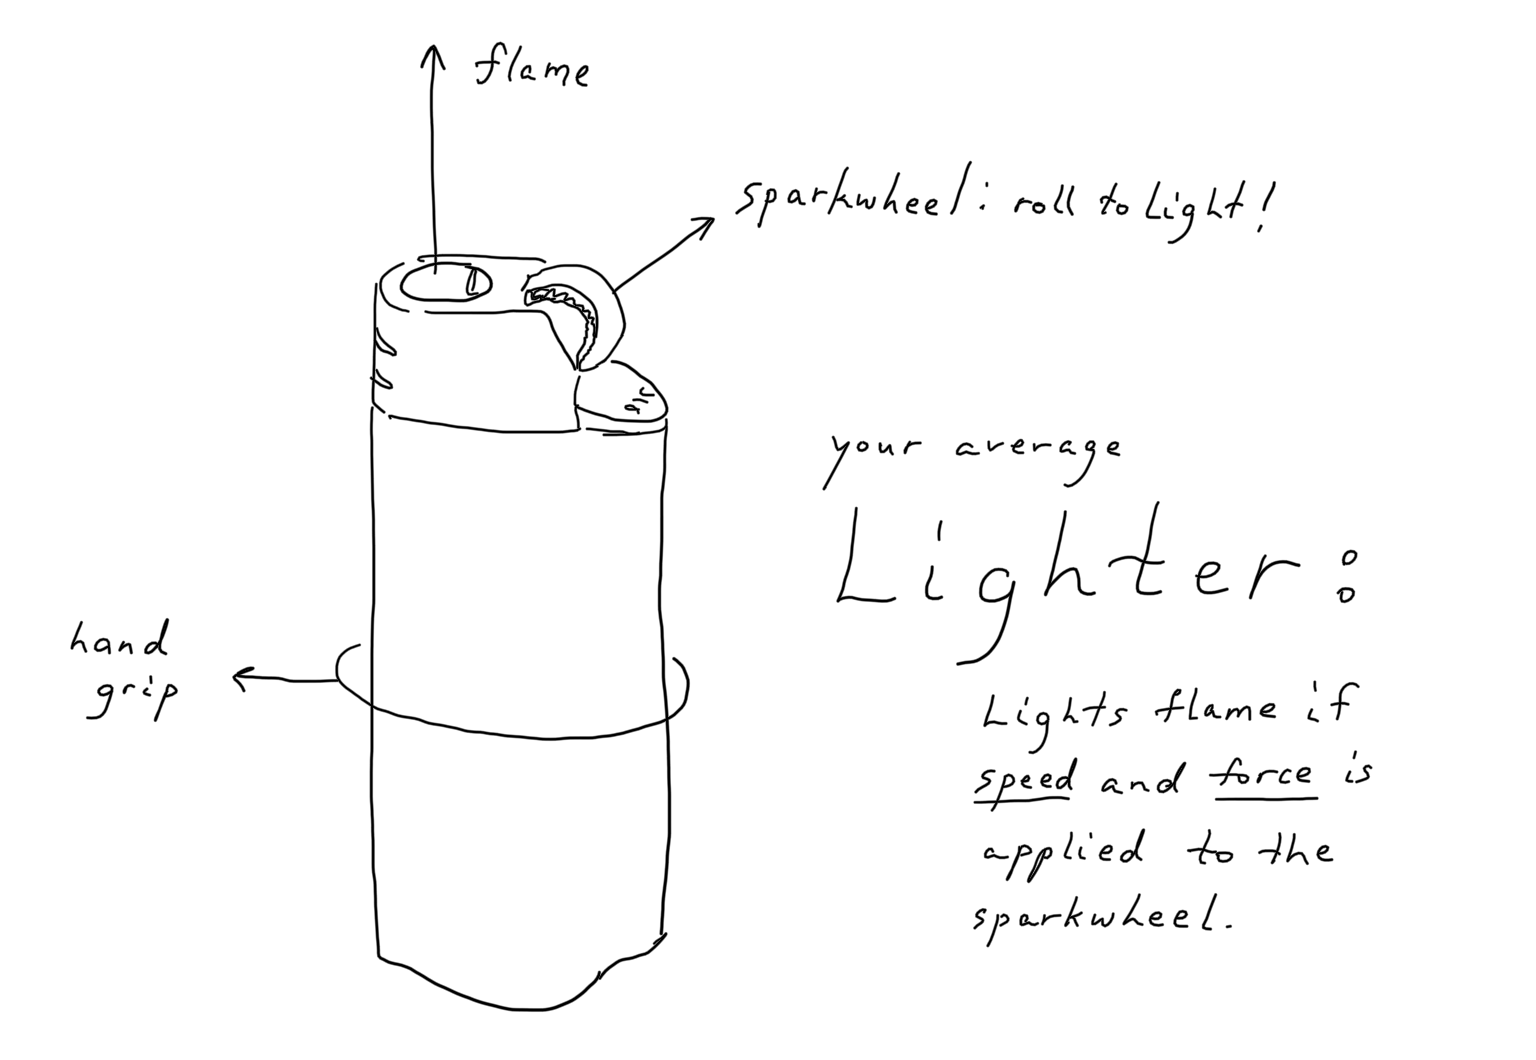 flame
sparkwheel: roll to Light!
your average
Lighter:
hand
grip
Lights flame if
speed and force is
applied to the
sparkwheel.